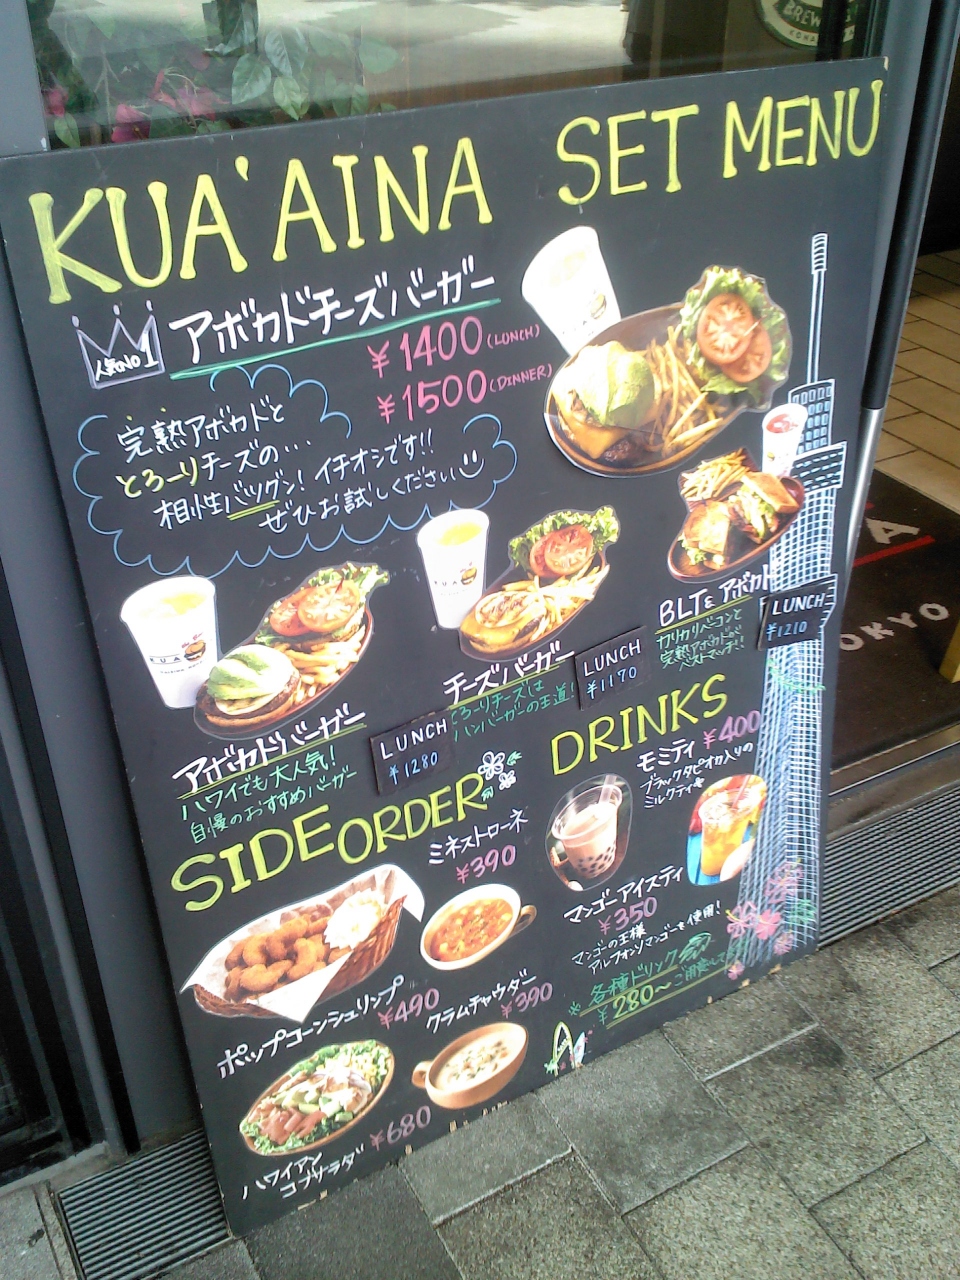 BREWING
KONA
KUA'AINA SET MENU
人気NO1
アボカドチーズバーガー
¥1400(LUNCH)
¥1500(DINNER)
完熟アボカドと
とろーりチーズの...
相性バツグン! イチオシです!!
ぜひお試しください
KUA
KUA
アボカドバーガー
ハワイでも大人気!
自慢のおすすめバーガー
LUNCH
¥1280
チーズバーガー
とろーりチーズは
ハンバーガーの王道!
LUNCH
¥1170
BLT&アボカド
カリカリベーコンと
完熟アボカドが
ベストマッチ!!
LUNCH
¥1210
SIDE ORDER
ミネストローネ
¥390
ポップコーンシュリンプ
¥490
クラムチャウダー
¥390
ハワイアン
コブサラダ
¥680
DRINKS
モミティ ¥400
ブラックタピオカ入りの
ミルクティ
マンゴーアイスティ
¥350
マンゴーの王様
アルフォンソマンゴーを使用!
各種ドリンク
¥280~ご用意して
A
TOKYO